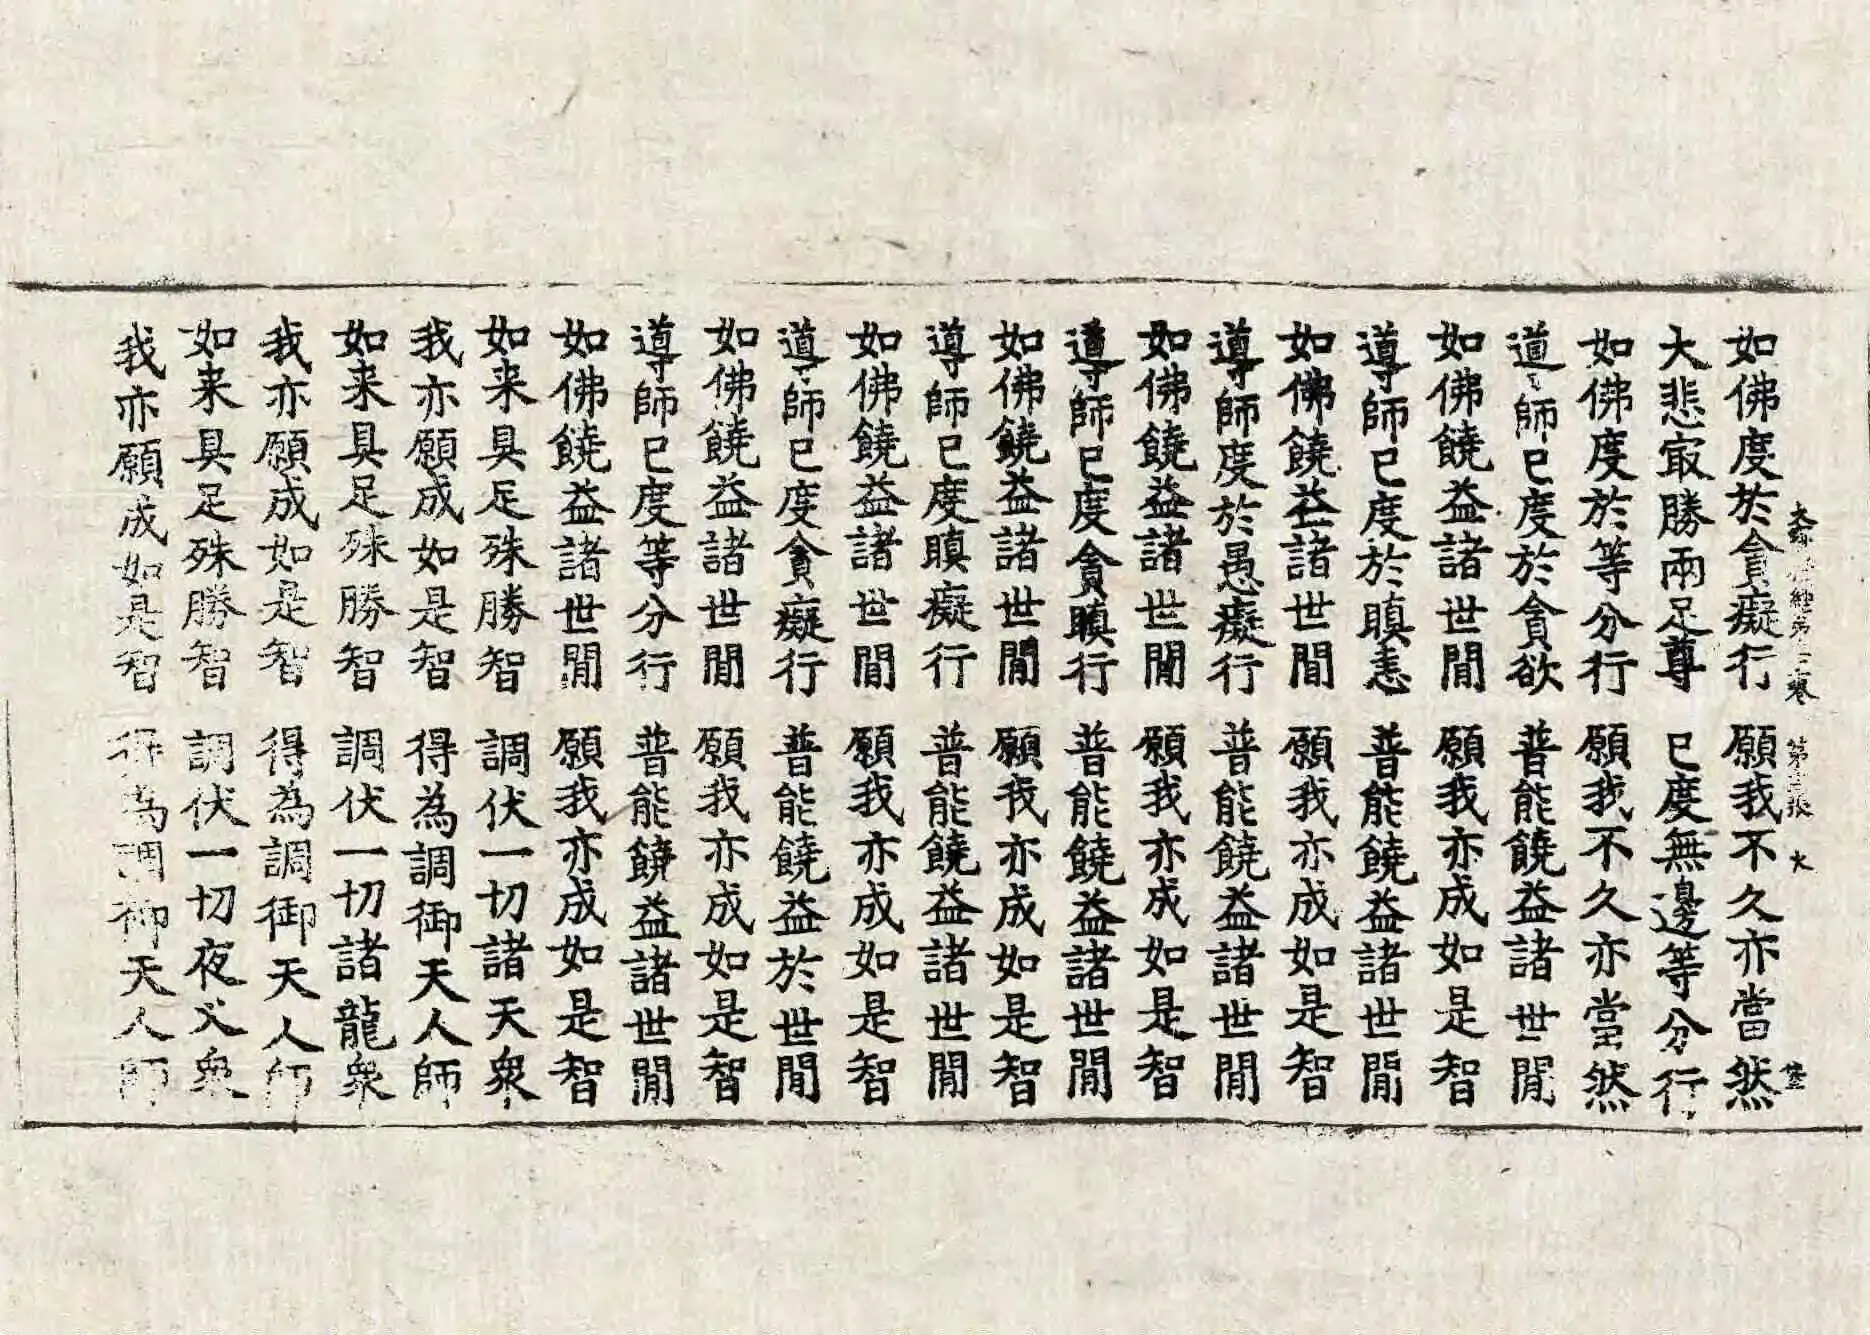 經第 卷 第 張 大
如佛度於貪癡行 願我不久亦當然
大悲㝡勝兩足尊 已度無邊等分行
如佛度於等分行 願我不久亦當然
導師已度於貪欲 普能饒益諸世間
如佛饒益諸世間 願我亦成如是智
導師已度於瞋恚 普能饒益諸世間
如佛饒益諸世間 願我亦成如是智
導師度於愚癡行 普能饒益諸世間
如佛饒益諸世間 願我亦成如是智
導師已度貪瞋行 普能饒益諸世間
如佛饒益諸世間 願我亦成如是智
導師已度瞋癡行 普能饒益諸世間
如佛饒益諸世間 願我亦成如是智
導師已度貪癡行 普能饒益於世間
如佛饒益諸世間 願我亦成如是智
導師已度等分行 普能饒益諸世間
如佛饒益諸世間 願我亦成如是智
如来具足殊勝智 調伏一切諸天衆
我亦願成如是智 得為調御天人師
如来具足殊勝智 調伏一切諸龍衆
我亦願成如是智 得為調御天人師
如来具足殊勝智 調伏一切夜叉衆
我亦願成如是智 得為調御天人師